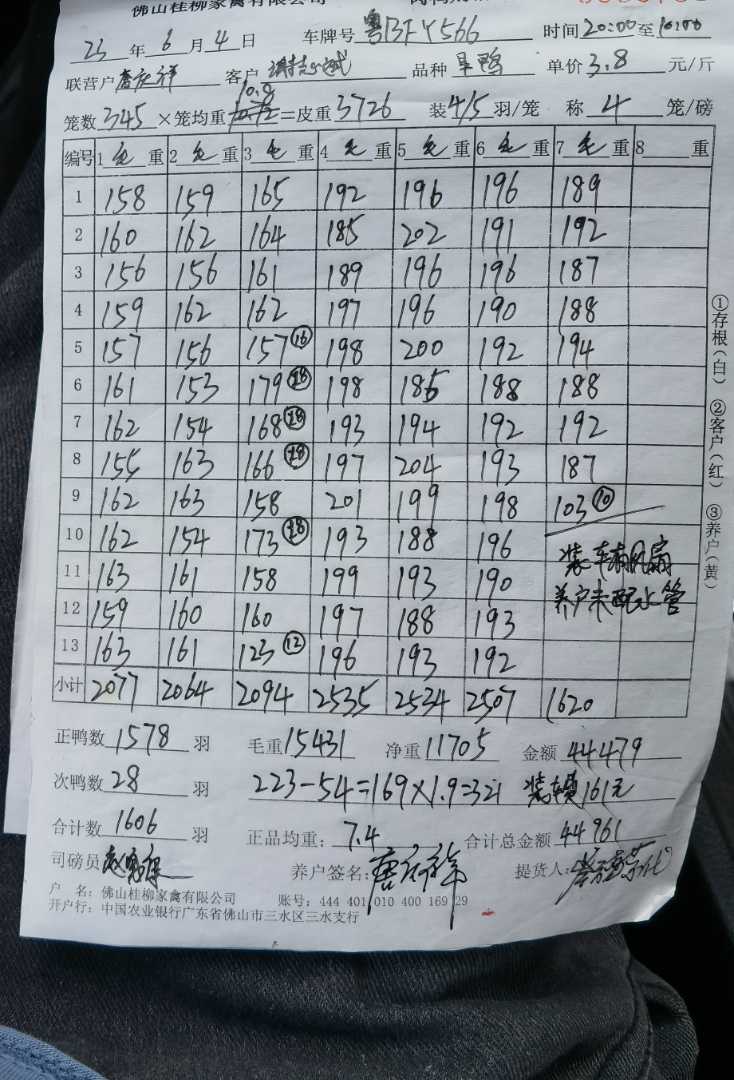 佛山桂柳家禽有限公司
23 年 6 月 4 日 车牌号 粤BFY566 时间 20:00 至 10:00
联营户 客户 品种 旱鸭 单价 3.8 元/斤
10.8
笼数 345 ×笼均重 10.72 =皮重 3726 装 4/5 羽/笼 称 4 笼/磅
编号 1 毛 重 2 毛 重 3 毛 重 4 毛 重 5 毛 重 6 毛 重 7 毛 重 8 重
1 158 159 165 192 196 196 189
2 160 162 164 185 202 191 192
3 156 156 161 189 196 196 187
4 159 162 162 197 196 190 188
5 157 156 157 ⑯ 198 200 192 194
6 161 153 179 ⑱ 198 185 188 188
7 162 154 168 ⑱ 193 194 192 192
8 155 163 166 ⑱ 197 204 193 187
9 162 163 158 201 199 198 103 ⑩
10 162 154 173 ⑱ 193 188 196
11 163 161 158 199 193 190
12 159 160 160 197 188 193
13 163 161 123 ⑫ 196 193 192
装车有风扇
养户未配水管
小计 2077 2064 2094 2535 2534 2507 1620
①存根(白) ②客户(红) ③养户(黄)
正鸭数 1578 羽 毛重 15431 净重 11705 金额 44479
次鸭数 28 羽 223-54=169×1.9=321 装车费161元
合计数 1606 羽 正品均重: 7.4 合计总金额 44961
司磅员 养户签名: 提货人:
户 名: 佛山桂柳家禽有限公司 账号: 444 401 010 400 169 29
开户行: 中国农业银行广东省佛山市三水区三水支行